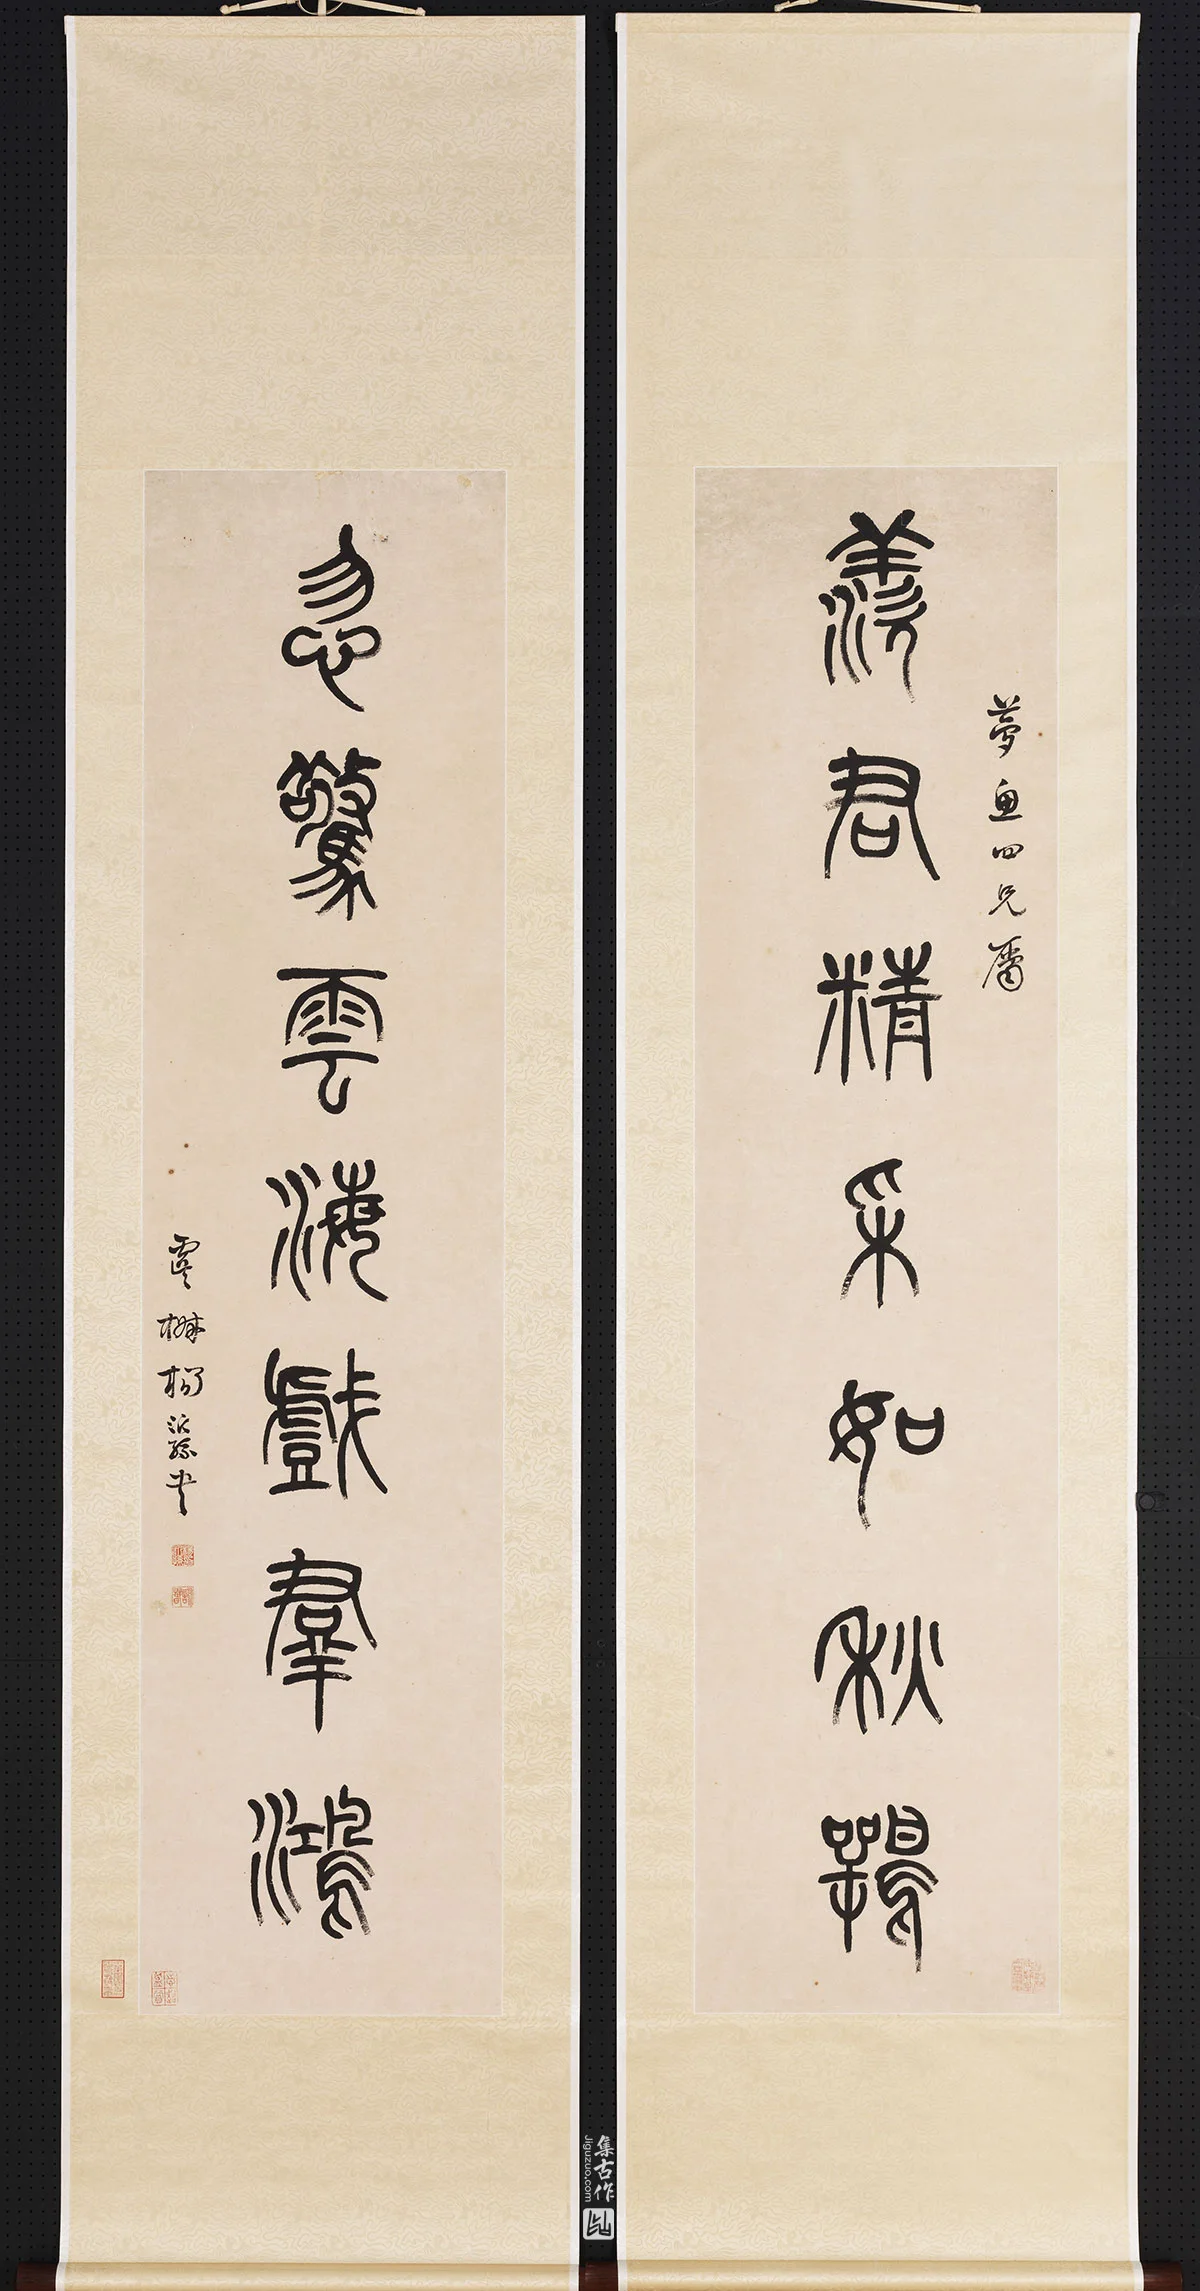 羨君精采如秋鶚
夢四兄屬
忽驚雲海戲羣鴻
虞楊沂孫書
集古作
Jiguzuo.com